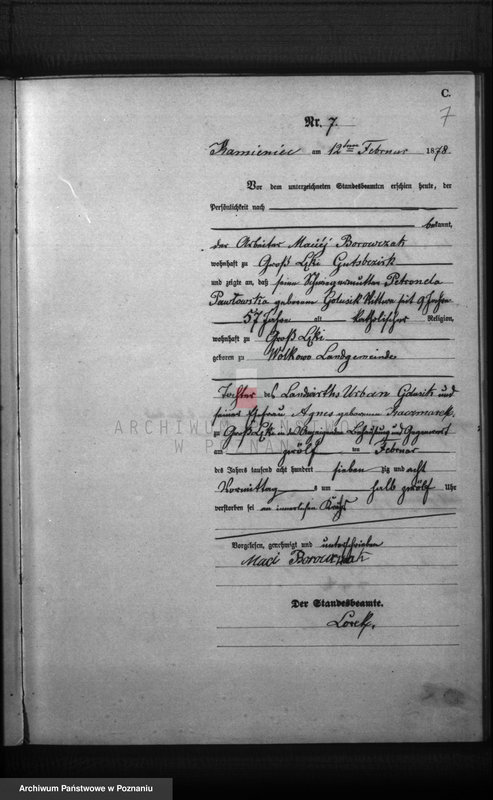 C.
7
Nr. 7.
Kamieniec am 12ten Februar 1878
Vor dem unterzeichneten Standesbeamten erschien heute, der
Persönlichkeit nach
bekannt,
der Arbeiter Maciéj Borowczak
wohnhaft zu Groß Lęki Gutsbezirk
und zeigte an, daß seine Schwiegermutter Petronela
Pawłowska geborene Wittwe seit 9 Jahren
57 Jahre alt katholischer Religion,
wohnhaft zu Groß Lęki
geboren zu Wolkowo Landgemeinde
Tochter des Landwirths Urban und
seiner Ehefrau Agnes geborenen Kaczmarek
zu Groß Lęki in und Gegenwart
am zwölf ten Februar
des Jahres tausend acht hundert sieben zig und acht
Vormittag s um halb zwölf Uhr
verstorben sei an innerlichen
Vorgelesen, genehmigt und unterschrieben
Maci Borowczak
Der Standesbeamte.
ARCHIWUM PAŃSTWOWE
W POZNANIU
Archiwum Państwowe w Poznaniu